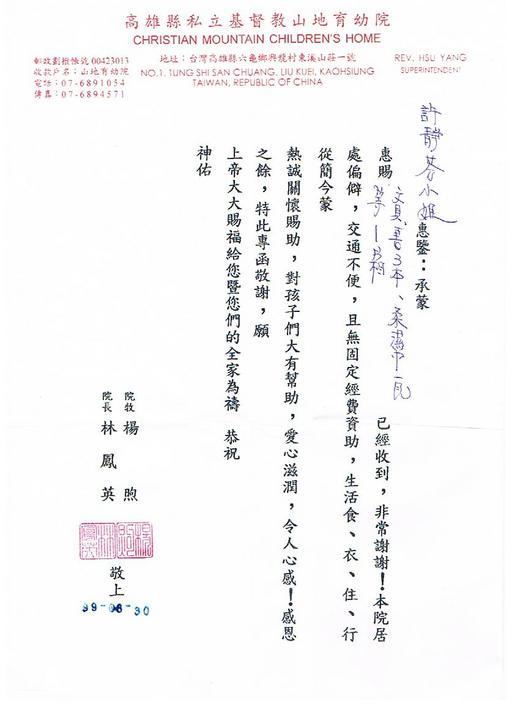 高雄縣私立基督教山地育幼院
CHRISTIAN MOUNTAIN CHILDREN'S HOME
郵政劃撥帳號 00423013
收款戶名：山地育幼院
電話：07-6891054
傳真：07-6894571
地址：台灣高雄縣六龜鄉興龍村東溪山莊一號
NO.1, TUNG SHI SAN CHUANG, LIU KUEI, KAOHSIUNG
TAIWAN, REPUBLIC OF CHINA
REV. HSU YANG
SUPERINTENDENT
許靜芬小姐惠鑒：承蒙
惠賜 文具、書3本、柔濕巾一瓦等 已經收到，非常謝謝！本院居
處偏僻，交通不便，且無固定經費資助，生活食、衣、住、行
從簡今蒙
熱誠關懷賜助，對孩子們大有幫助，愛心滋潤，令人心感！感恩
之餘，特此專函敬謝，願
上帝大大賜福給您暨您們的全家為禱 恭祝
神佑
院牧 楊 煦
院長 林 鳳 英
敬上
99-06-30